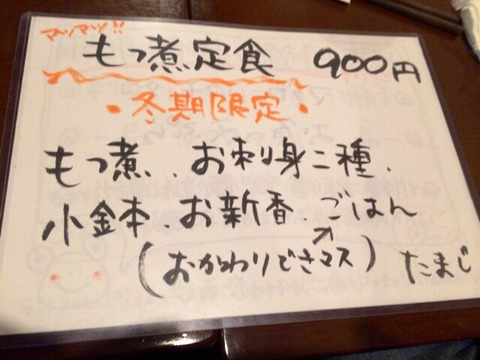 アツアツ!!
もつ煮定食 900円
・冬期限定・
もつ煮、お刺身二種、
小鉢本、お新香、ごはん
(おかわりできマス) たまじ